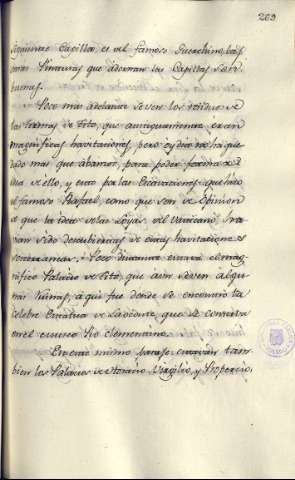 269
siguiente Capilla, es del famoso Guerchino, las
otras Pinturas que adornan las Capillas son
buenas.
Poco mas adelante se ven los residuos de
las termas de Tito, que antiguamente eran
magnificas havitaciones, pero oy dia no ha que
dado mas que abanzos, para poder formar
idea de ello, y esto por las Excavaciones que hizo
el famoso Rafael, como que son de opinion
de que la idea de las Lojas del Vaticano, ha
van sido descubiertas de estas havitaciones
subterraneas. Poco distante estava el mag
nifico Palacio de Tito, que aun se ven algu
nas Ruinas, aqui fue donde se encontró la
celebre Estatua de Laoconte, que se conserva
en el museo Pio Clementino.
En este mismo parage estavan tam
bien los Palacios de Horacio Virgilio, y Propercio,